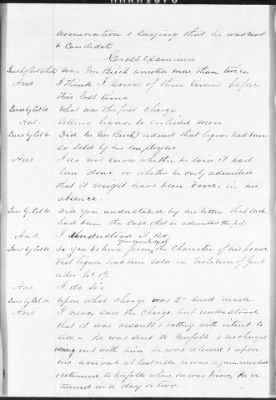 nomination & saying that he was not
a Candidate
Cross Examined
was Mr Birch arrested more than twice
Ans I think I know of three times before
this last time
Ques by Col What was the first charge
Ans. Selling liquor to enlisted men
Ques by Col Did he (Mr Birch) admit that liquor had been
so Sold by his employees
Ans I do not know whether he said it had
been done or whether he only admitted
that it might have been done in his
absence.
Ques by Col Did you understand by his letter that such
had been the case, that he admitted the
Ans. I understood it so
Ques by Col Do you believe from the Character of his house
that liquor had been sold in violation of Genl
order No 19.
Ans I do Sir
Ques by Col upon what Charge was 2d arrest made
Ans I never saw the Charge but understood
that it was assault & battery with intent to
- he was sent to Norfolk &
out with him he was released & upon
his arrival at he was again arrested
& returned to Norfolk when he was tried, he re
turned in a day or two